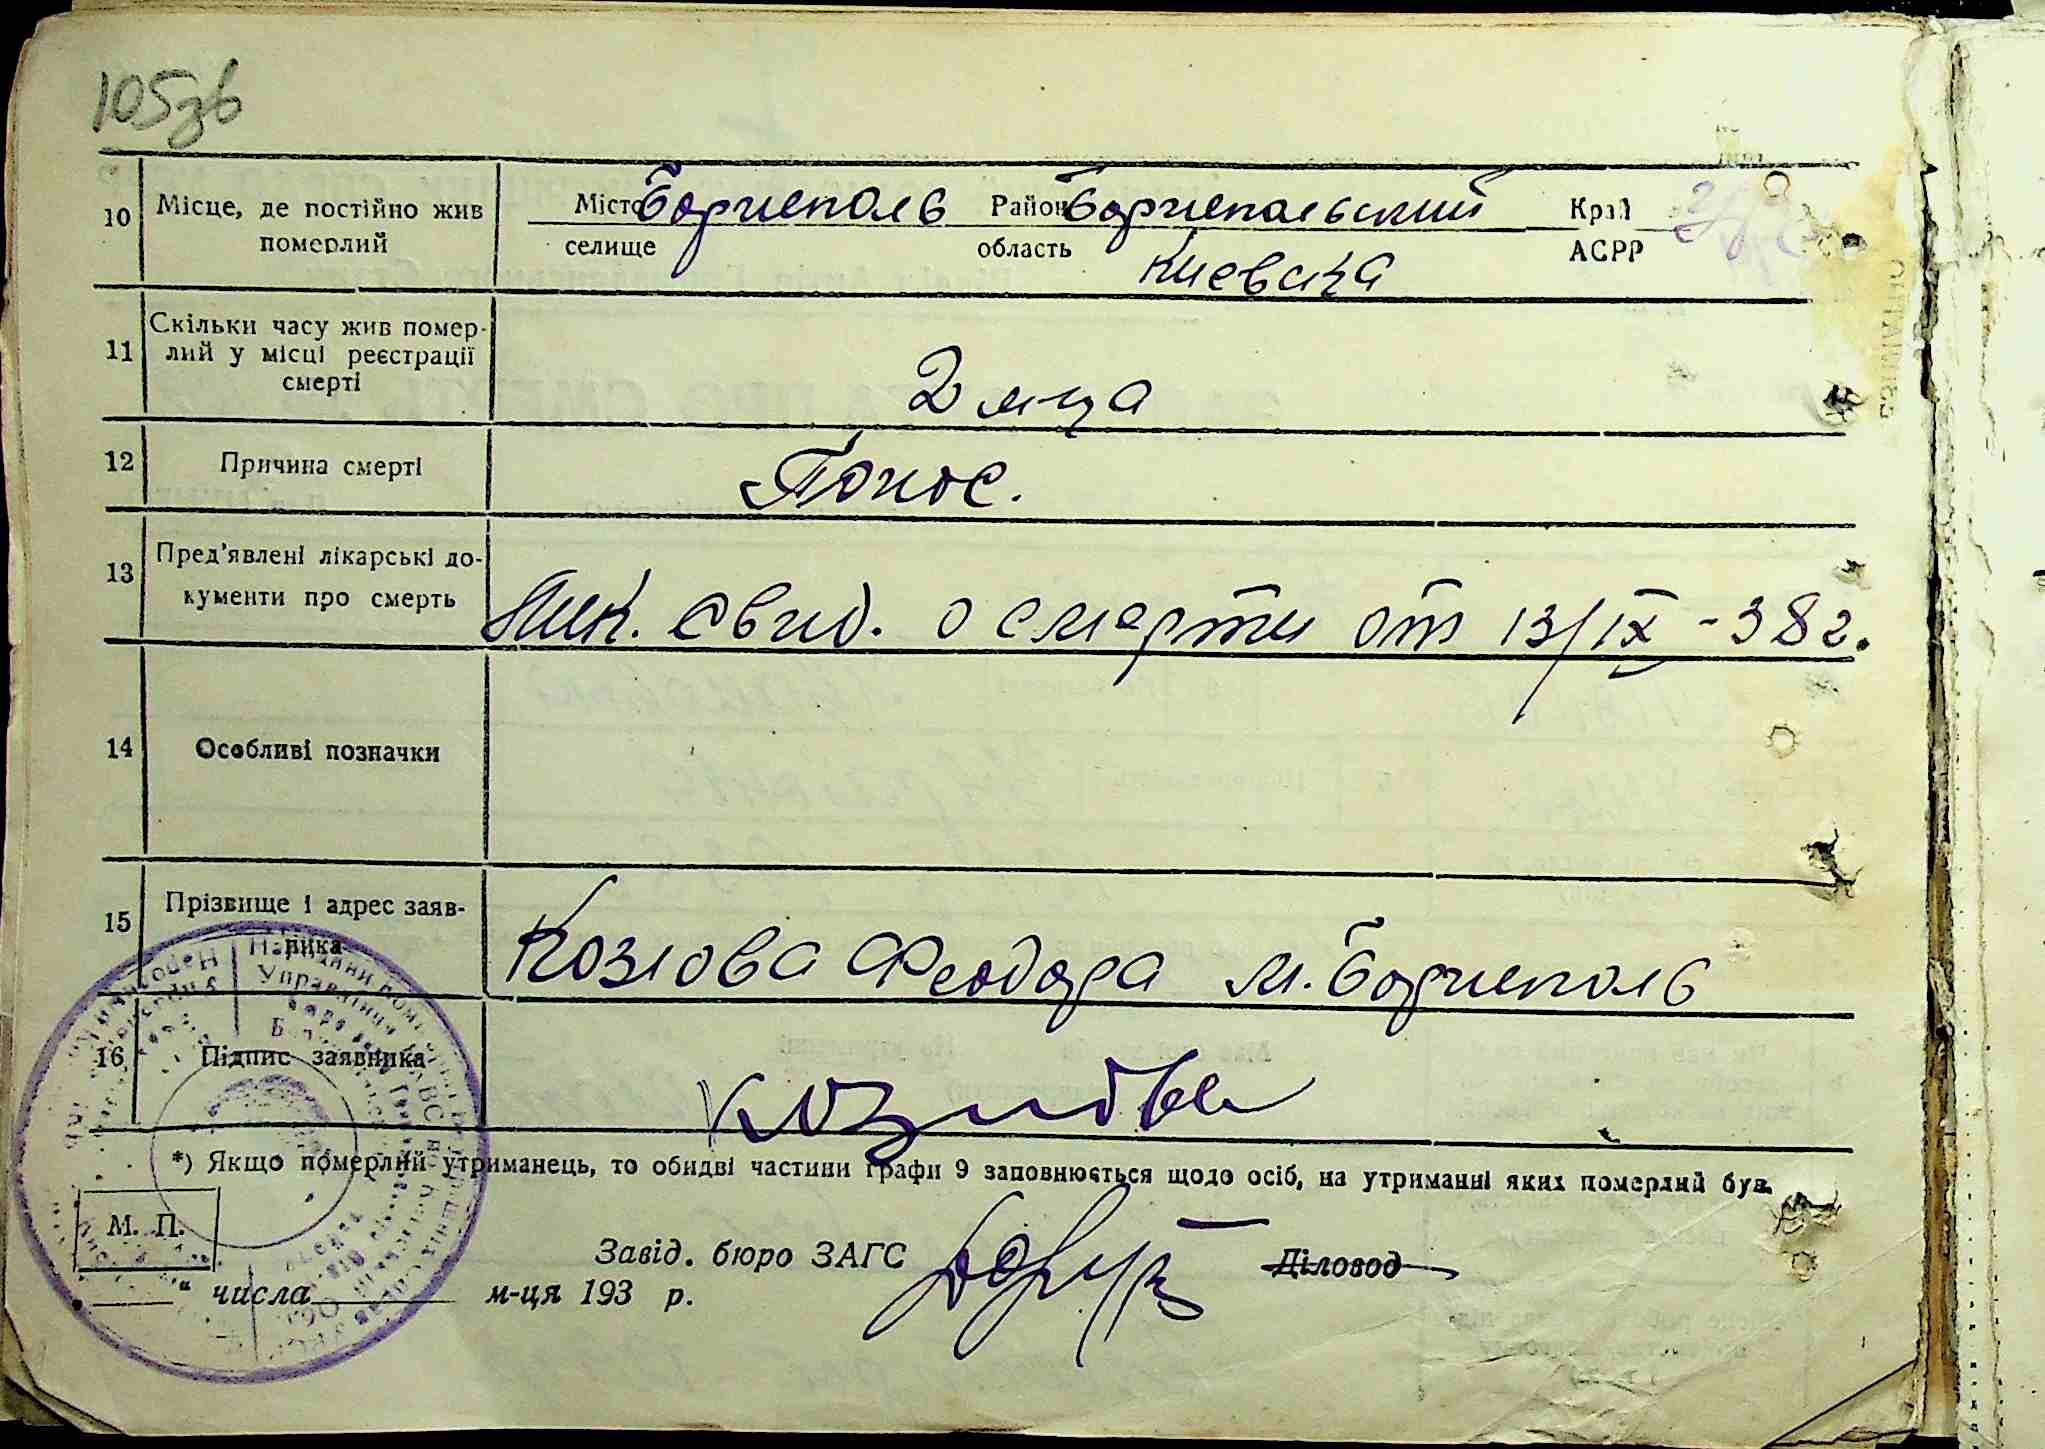 105зв
10 Місце, де постійно жив Місто Борисполь Район Бориспольский Край
померлий селище область Киевска АСРР
11 Скільки часу жив помер-
лий у місці реєстрації
смерті 2 м-ца
12 Причина смерті Понос.
13 Пред’явлені лікарські до-
кументи про смерть свид. о смерти от 13/IX-38г.
14 Особливі позначки
15 Прізвище і адрес заяв-
ника Козлова Феодора м. Борисполь
16 Підпис заявника Козлова
*) Якщо померлий утриманець, то обидві частини графи 9 заповнюється щодо осіб, на утриманні яких померлий був.
М. П.
Завід. бюро ЗАГС Діловод
" числа м-ця 193 р.